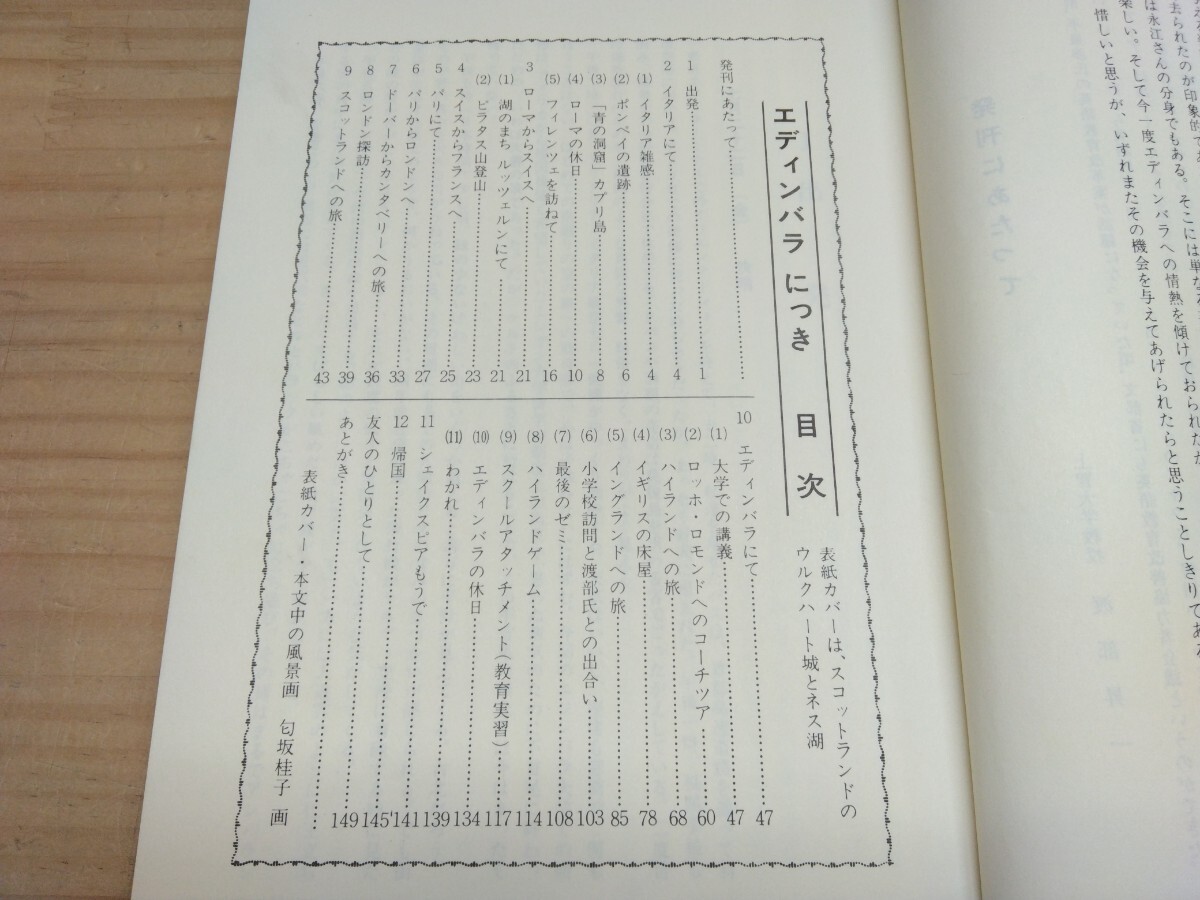 去られたのが印象的で
は永江さんの分身でもある。そこには単な
楽しい。そして今一度エディンバラへの情熱を傾けておられたが
惜しいと思うが、いずれまたその機会を与えてあげられたらと思うことしきりである
エディンバラ にっき 目 次
表紙カバーは、スコットランドの
ウルクハート城とネス湖
発刊にあたって
1 出発 1
2 イタリアにて 4
(1) イタリア雑感 4
(2) ポンペイの遺跡 6
(3) 「青の洞窟」カプリ島 8
(4) ローマの休日 10
(5) フィレンツェを訪ねて 16
3 ローマからスイスへ 21
(1) 湖のまち ルッツェルンにて 21
(2) ピラタス山登山 23
4 スイスからフランスへ 25
5 パリにて 27
6 パリからロンドンへ 33
7 ドーバーからカンタベリーへの旅 36
8 ロンドン探訪 39
9 スコットランドへの旅 43
10 エディンバラにて 47
(1) 大学での講義 47
(2) ロッホ・ロモンドへのコーチツア 60
(3) ハイランドへの旅 68
(4) イギリスの床屋 78
(5) イングランドへの旅 85
(6) 小学校訪問と渡部氏との出合い 103
(7) 最後のゼミ 108
(8) ハイランドゲーム 114
(9) スクールアタッチメント(教育実習) 117
(10) エディンバラの休日 134
(11) わかれ 139
11 シェイクスピアもうで 141
12 帰国 145
友人のひとりとして 149
あとがき
表紙カバー・本文中の風景画 匂坂桂子 画